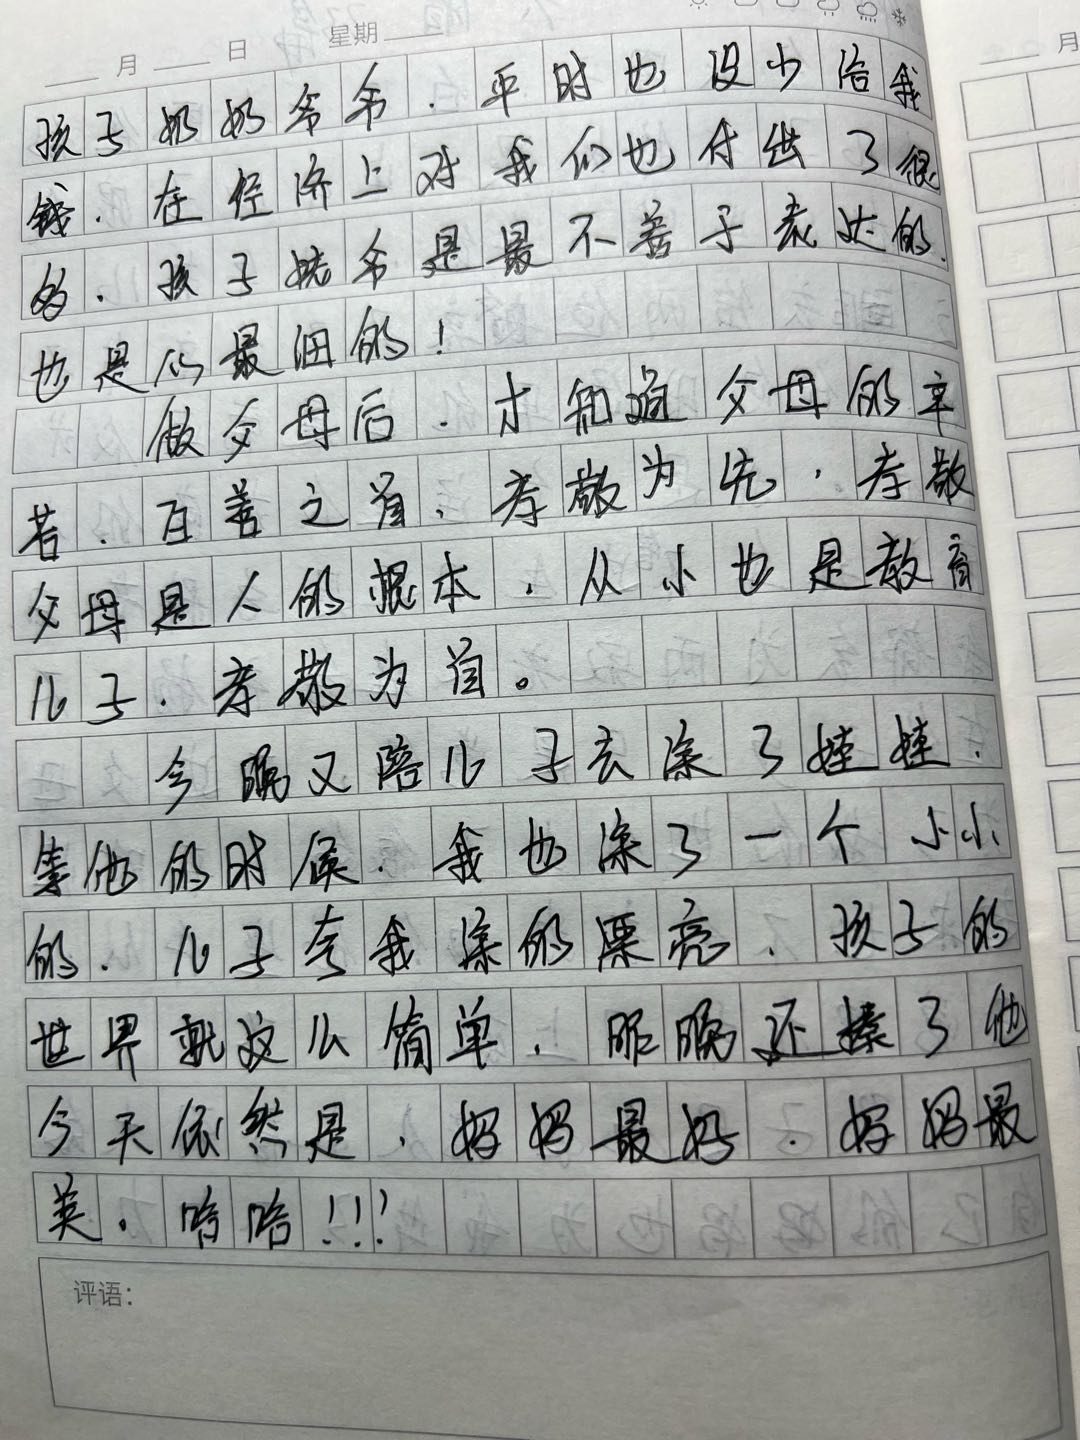 月 日 星期
孩子奶奶爷爷.平时也没少给我
钱.在经济上对我们也付出了很
多.孩子姥爷是最不善于表达的.
也是心最细的!
做父母后.才知道父母的辛
苦.百善之首,孝敬为先,孝敬
父母是人的根本.从小也是教育
儿子.孝敬为首。
今晚又陪儿子去涂了娃娃.
等他的时候.我也涂了一个小小
的.儿子夸我涂的漂亮.孩子的
世界就这么简单.昨晚还揍了他
今天依然是.妈妈最好.妈妈最
美.哈哈!!!
评语:
月